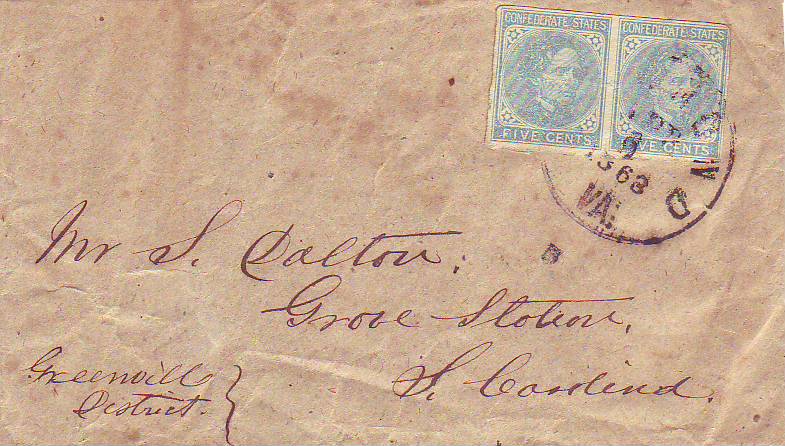 CONFEDERATE STATES CONFEDERATE STATES
FIVE CENTS FIVE CENTS
1863
VA.
Mr S. Dalton.
Grove Station,
S. Carolina.
Greenvill
District.